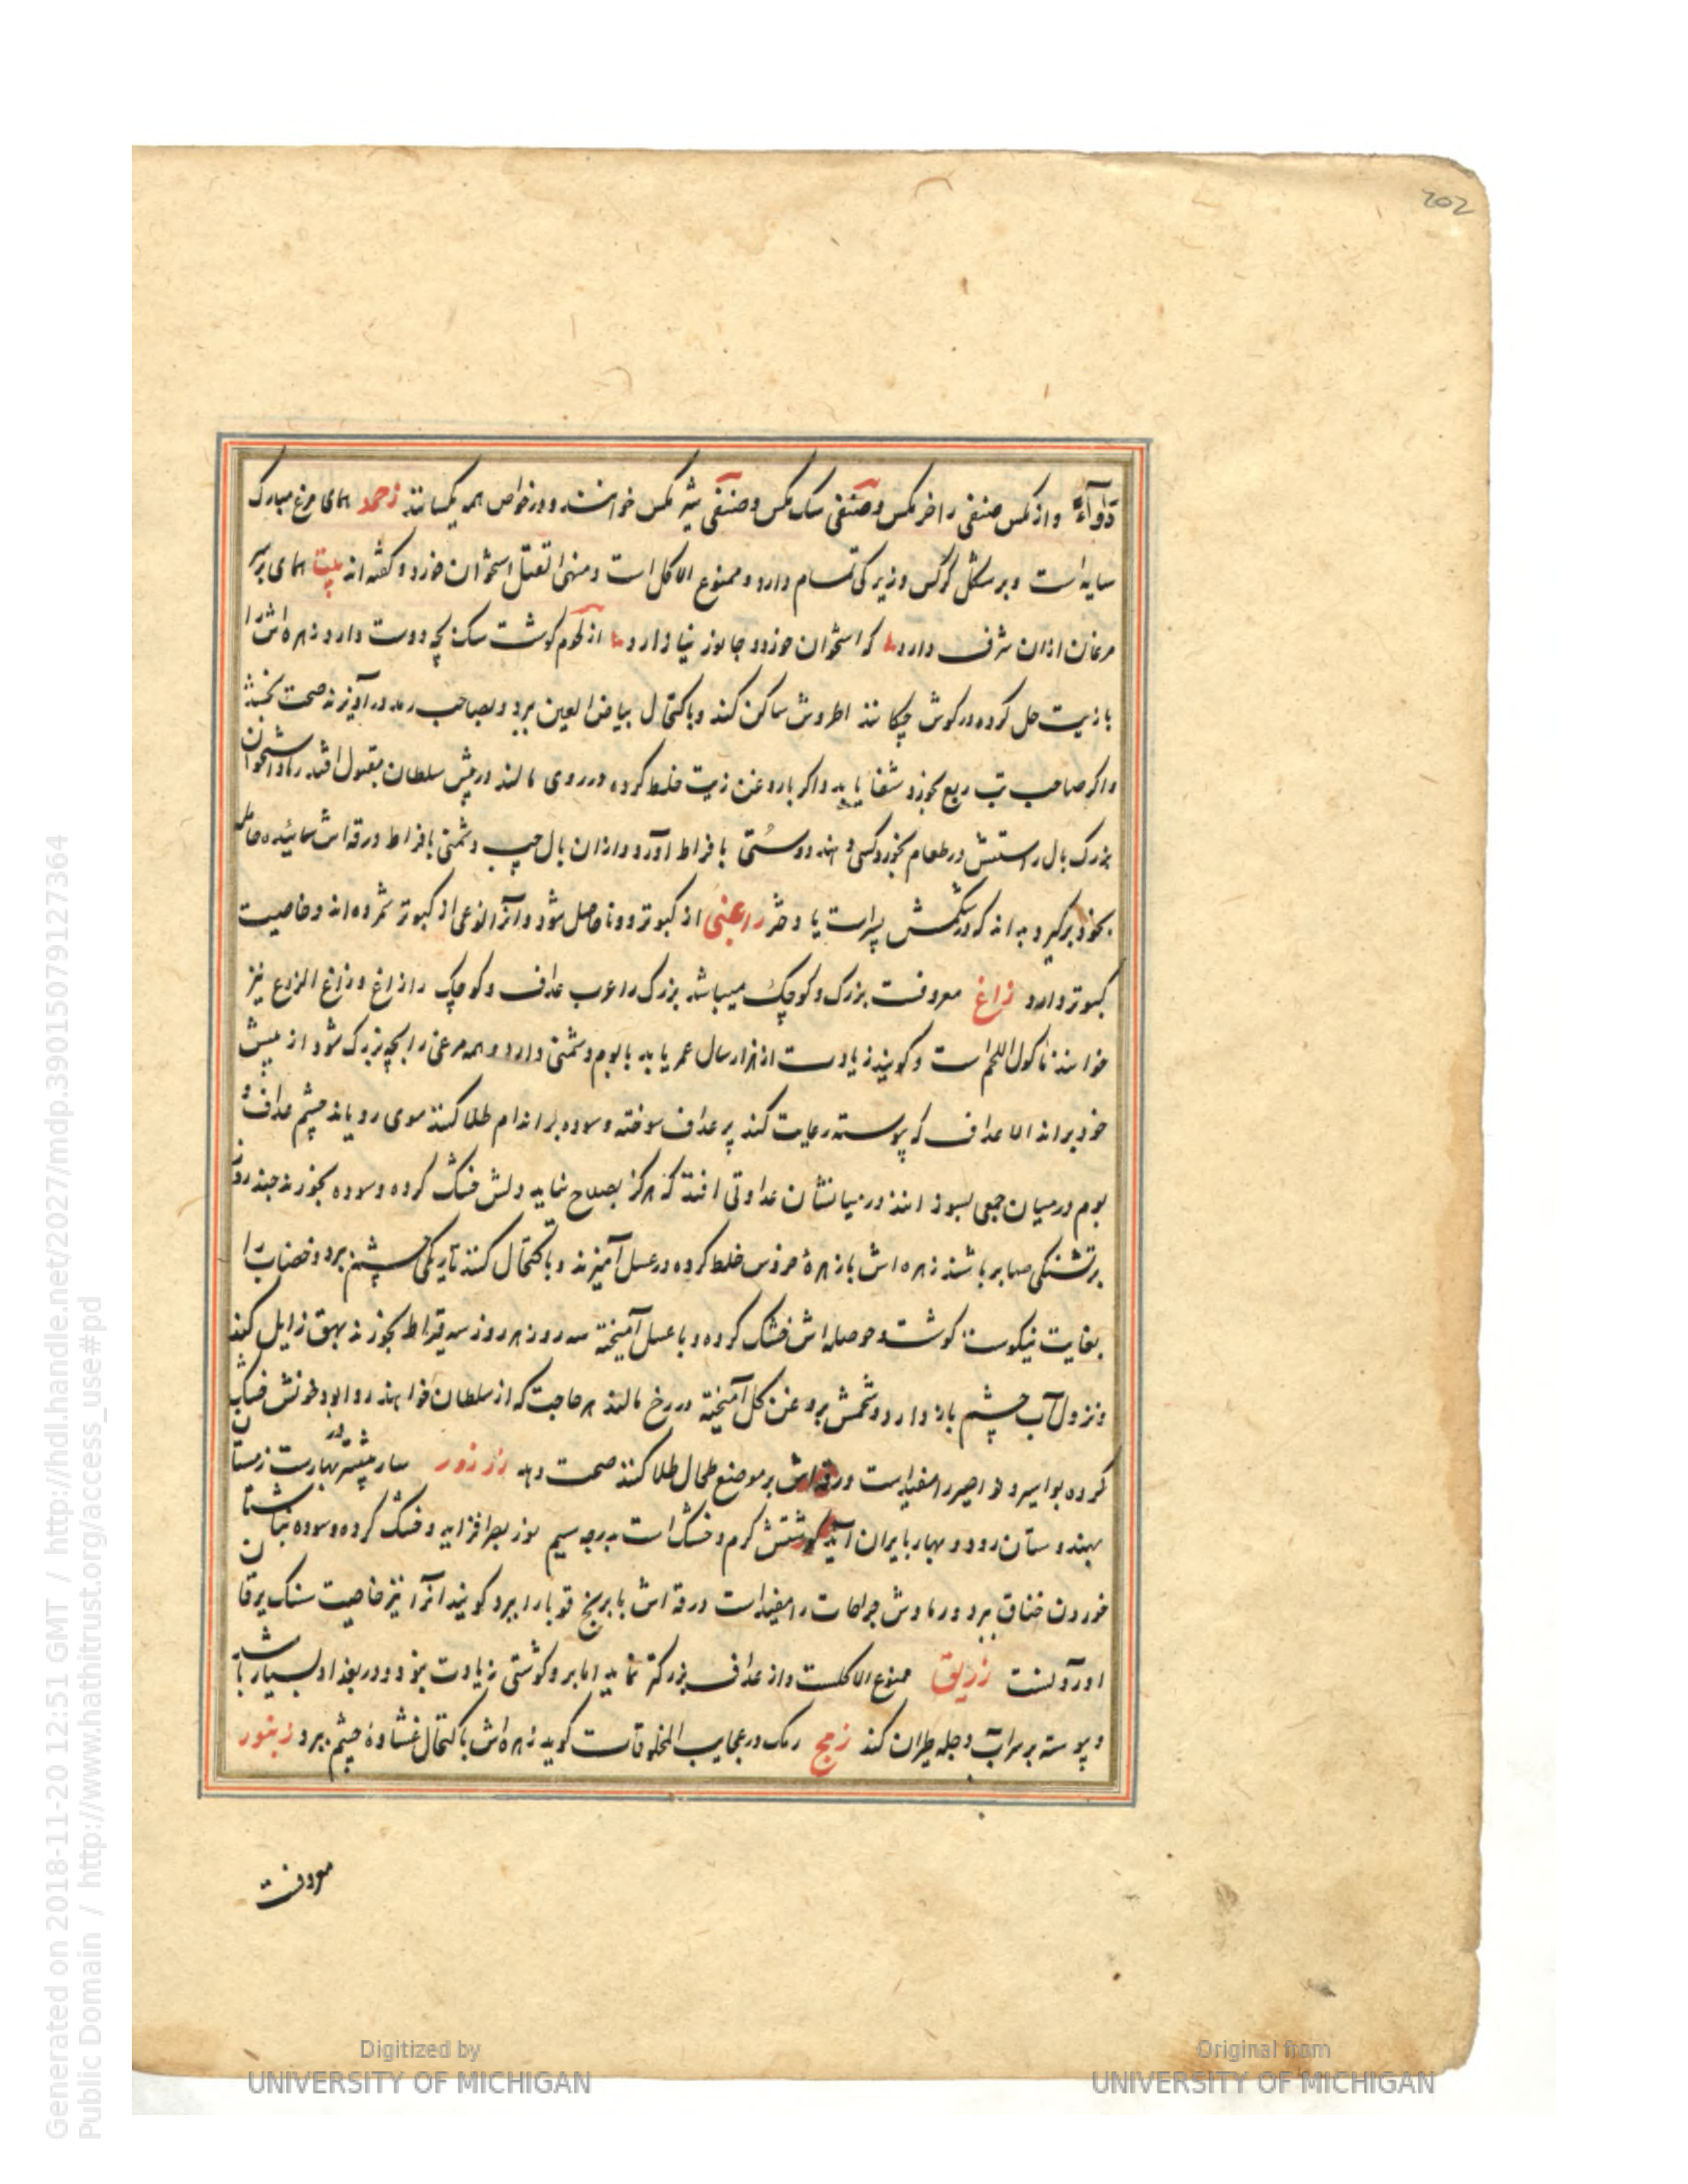 202
دَوَآءً و از مکس صنفی را خر مکس و صنفی سک مکس و صنفی شیر مکس خوانند و در خواص همه یکسانند زحمد همای مرغ مبارک
سایه است و بر شکل کرکس و زیرکی تمام دارد و ممنوع الاکل است و منهی القتل استخوان خورد و کفته‌اند بیت همای بر سر
مرغان ازان شرف دارد که استخوان خورد و جانور نیازارد از لحوم کوشت سک بچه دوست دارد زهره‌اش را
با زیت حل کرده در کوش چکانند اطروش ساکن کند و باکتحال بیاض العین برد و بصاحب رمد درآویزند صحت بخشد
و اکر صاحب تب ربع بخورد شفا یابد و اکر با روغن زیت خلط کرده در روی مالند در پیش سلطان مقبول افتد و استخوان
بزرک بال راستش در طعام بخورد کسی دهند دوستی بافراط آورد و ازان بال چپ دشمنی بافراط ورقه‌اش سائیده حامله
بخود برکیرد بداند که در شکمش پسر است یا دختر راعبی از کبوتر و ورنا حاصل شود و آنرا نوعی از کبوتر شمرده‌اند و خاصیت
کبوتر دارد زاغ معروفست بزرک و کوچک میباشد بزرک را عرب غداف و کوچک را زاغ و زاغ الزرع نیز
خوانند ماکول اللحم است و کویند زیادت از هزار سال عمر یابد با بوم دشمنی دارد و همه مرغی را بچه بزرک شود از پیش
خود براند الا غداف که پیوسته رعایت کند پر غداف سوخته و سوده بر اندام طلا کنند موی رویاند چشم غداف و
بوم در میان جمعی بسوزانند در میانشان عداوتی افتد که هرکز بصلاح نیاید دلش خشک کرده و سوده بخورند چند روز
بر تشنکی صابر باشند زهره‌اش با زهرهٔ خروس خلط کرده در عسل آمیزند و باکتحال کنند تاریکی چشم برد و خضاب را
بغایت نیکوست کوشت و حوصله‌اش خشک کرده و با عسل آمیخته سه روز هر روز سه قیراط بخورند بهق زایل کند
و نزول آب چشم باز دارد و شحمش بروغن کل آمیخته در رخ مالند هر حاجت که از سلطان خواهند روا بود خونش خشک
کرده بواسیر و نواصیر را مفید است ورقه‌اش بر موضع طحال طلا کنند صحت دهد زرزور سار پیشتر در بهارست زمستان
بهندوستان رود و بهار بایران آید کوشتش کرم و خشک است بدرجه سیم نور بصر افزاید و خشک کرده و سوده بناشتا
خوردن خناق برد و رمادش جراحات را مفید است ورقه‌اش با برنج قوبا را ببرد کویند آنرا نیز خاصیت سنک یرقان
آوردنست زریق ممنوع الاکلست و از غداف بزرکتر نماید اما برو کوشتی زیادت نبود و در بغداد بسیار باشد
و پیوسته بر سر آب دجله طیران کند زمج رمک در عجایب المخلوقات کوید زهره‌اش باکتحال غشاوهٔ چشم ببرد زنبور
معروفست
Generated on 2018-11-20 12:51 GMT / http://hdl.handle.net/2027/mdp.39015079127364
Public Domain / http://www.hathitrust.org/access_use#pd
Digitized by
UNIVERSITY OF MICHIGAN
Original from
UNIVERSITY OF MICHIGAN